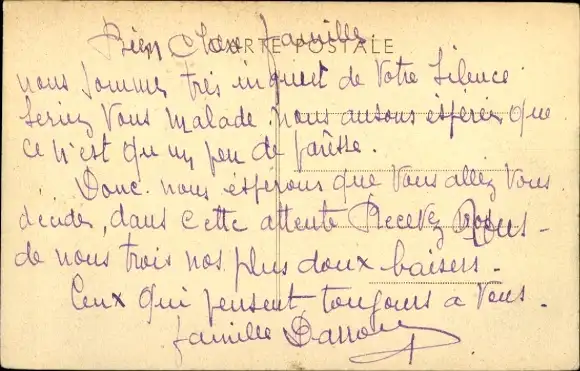 Bien Cher famille
CARTE POSTALE
nous sommes très inquiet de Votre Silence
Seriez Vous malade nous ausons éspérér que
ce n'est qu'un peu de parèsse.
Donc nous ésperons que Vous allez Vous
décider, dans Cette attente Recevez tous -
de nous trois nos plus doux baisers -
Ceux qui pensent toujours a Vous -
famille